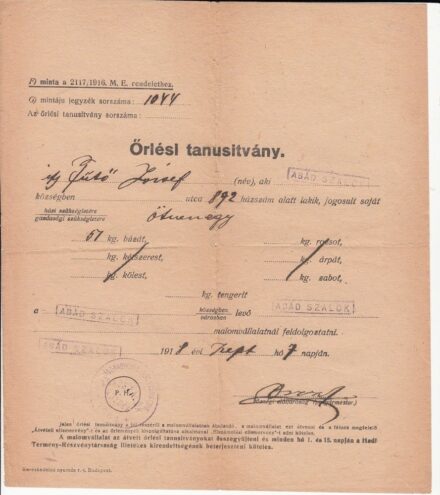 F) minta a 2117/1916. M. E. rendelethez.
G) mintáju jegyzék sorszáma: 1044
Az őrlési tanusitvány sorszáma:
Őrlési tanusitvány.
ifj Fütő József (név), aki ABÁD SZALÓK
községben utca 892 házszám alatt lakik, jogosult saját
házi szükségletére
gazdasági szükségletére
Ötvenegy
51 kg. búzát, kg. rozsot,
kg. kétszerest, kg. árpát,
kg. kölest, kg. zabot,
kg. tengerit
a ABÁD SZALÓK községben
városban levő ABÁD SZALÓK
ABÁD SZALÓK malomvállalatnál feldolgoztatni.
1918 évi Sept hó 7 napján.
P. H.
községi elöljáróság
Jelen őrlési tanusitvány a fél részéről a malomvállalatnak átadandó, a malomvállalat ezt átveszi és a félnek megfelelő
„Átvételi elismervény"-t és az őrlemények kiszolgáltatása alkalmával „Ellenőrzési elismervény"-t adni köteles.
A malomvállalat az átvett őrlési tanusitványokat összegyüjteni és minden hó 1. és 15. napján a Hadi
Termény-Részvénytársaság illetékes kirendeltségének beterjeszteni köteles.
Kereskedelmi nyomda r.-t. Budapest.